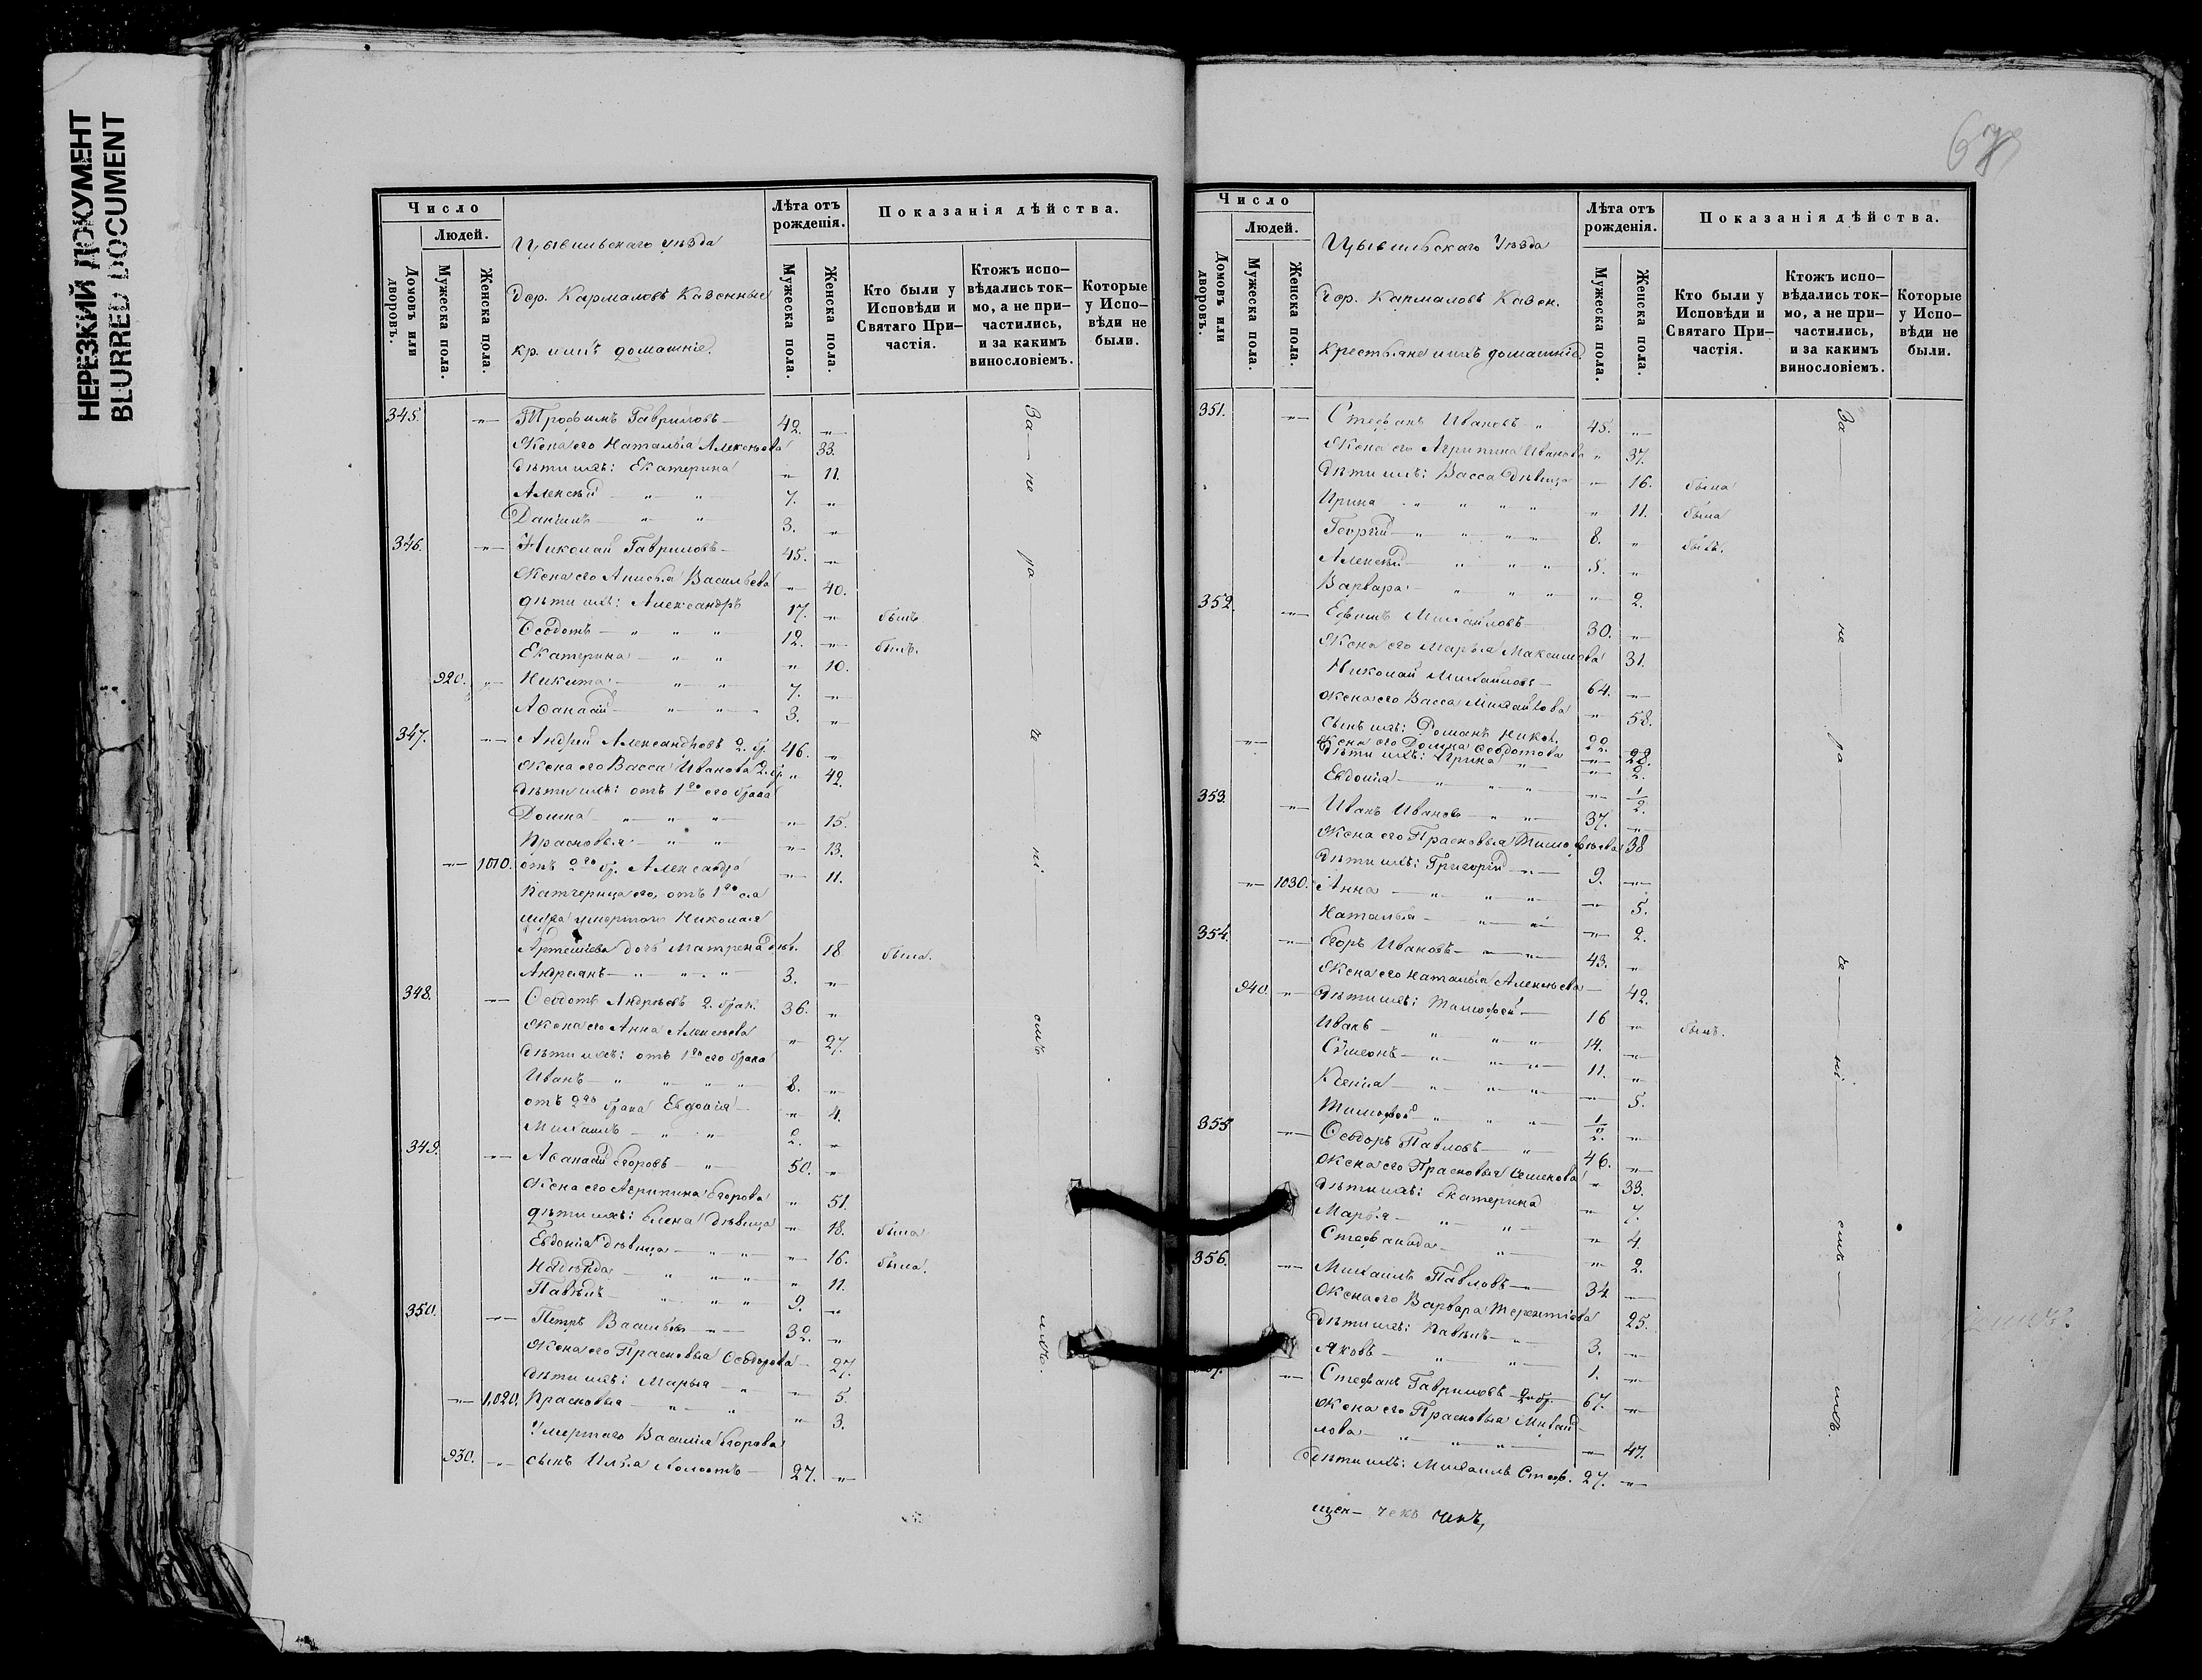 НЕРЕЗКИЙ ДОКУМЕНТ
BLURRED DOCUMENT
Число
Людей.
Домовъ или дворовъ.
Мужеска пола.
Женска пола.
Цывильскаго уѣзда
дер. Кармаловъ Казенные
кр. и ихъ домашніе.
Лѣта отъ рожденія.
Мужеска пола.
Женска пола.
Показанія дѣйства.
Кто были у Исповѣди и Святаго Причастія.
Ктожъ исповѣдались токмо, а не причастились, и за какимъ винословіемъ.
Которые у Исповѣди не были.
345. -"- Трофимъ Гавриловъ 42. "
Жена его Наталья Алексѣева 33.
дѣти ихъ: Екатерина " 11.
Алексѣй " " 7. "
Даніилъ " " 3. "
346. -"- Николай Гавриловъ 45. "
Жена его Анисья Васильева " 40.
дѣти ихъ: Александръ 17. " былъ
Ѳеодотъ " " " 12. " былъ.
Екатерина " " " 10.
920. " Никита " " 7. "
Аѳанасій " " 3. "
347. -"- Андрей Александровъ 2. бр. 46. "
Жена его Васса Иванова 2. бр. " 42.
дѣти ихъ: отъ 1го его брака
Домна " " " " 15.
Прасковья " " " 13.
-"- 1010. отъ 2го бр. Александра " 11.
Падчерица его, отъ 1го ея
мужа умершаго Николая
Артемьева дочь Матрена дѣв. 18 была.
Андреянъ " " " 3. "
348. -"- Ѳеодотъ Андреевъ 2. брак. 36. "
Жена его Анна Алексѣева " 27.
дѣти ихъ: отъ 1го его брака
Иванъ " " " " 8. "
отъ 2го брака Евдокія " 4.
Михаилъ " " 2. "
349. -"- Аѳанасій Егоровъ " 50. "
Жена его Агрипина Егорова " 51.
дѣти ихъ: Елена дѣвица " 18. была
Евдокія дѣвица " " " 16. была.
Надежда " " " " 11.
Павелъ " " " 9. "
350. -"- Петръ Васильевъ " 32. "
Жена его Прасковья Ѳеодорова 27.
дѣти ихъ: Марья " " 5.
-"- 1,020. Прасковья " " " 3.
Умершаго Василія Егорова
930. -"- сынъ Илья холостъ 27. "
За не ра че ні емъ ихъ.
67
Число
Людей.
Домовъ или дворовъ.
Мужеска пола.
Женска пола.
Цывильскаго Уѣзда
дер. Кармаловъ Казен.
крестьяне и ихъ домашніе
Лѣта отъ рожденія.
Мужеска пола.
Женска пола.
Показанія дѣйства.
Кто были у Исповѣди и Святаго Причастія.
Ктожъ исповѣдались токмо, а не причастились, и за какимъ винословіемъ.
Которые у Исповѣди не были.
351. -"- Стефанъ Ивановъ " 45. "
Жена его Агрипина Иванова " 37.
дѣти ихъ: Васса дѣвица " 16. была
Ирина " " " " " 11. была
Георгій " " " " 8. " былъ.
Алексѣй " " " 5. "
Варвара " " " " 2.
352. -"- Ефимъ Михайловъ 30. "
Жена его Марья Максимова 31.
Николай Михайловъ 64. "
жена его Васса Михайлова " 58.
сынъ ихъ: Романъ Никол. 22. "
Жена его Домна Ѳеодотова " 28.
дѣти ихъ: Ирина " " 2.
Евдокія " " " " 1/2.
353. -"- Иванъ Ивановъ " " 37. "
Жена его Прасковья Тимоѳеева 38
дѣти ихъ: Григорій " 9. "
-"- 1030. Анна " " " " 5.
Наталья " " " 2.
354. -"- Егоръ Ивановъ " " 43. "
Жена его Наталья Алексѣева 42.
940. " дѣти ихъ: Тимоѳей 16 " былъ.
Иванъ " " " 14. "
Сѵмеонъ " " " 11. "
Ксенія " " " " 5.
Тимоѳей " " " 1/2. "
355 -"- Ѳеодоръ Павловъ " 46. "
Жена его Прасковья Семенова " 33.
дѣти ихъ: Екатерина " 7.
Марья " " " 4.
Стефанида " " 2.
356. -"- Михаилъ Павловъ " 34 "
Жена его Варвара Терентіева 25.
дѣти ихъ: Павелъ " 3. "
Яковъ " " 1. "
-"- Стефанъ Гавриловъ 2 бр. 67. "
жена его Прасковья Михай-
лова " " " " 47.
дѣти ихъ: Михаилъ Стеф. 27. "
За не ра че ні емъ ихъ.